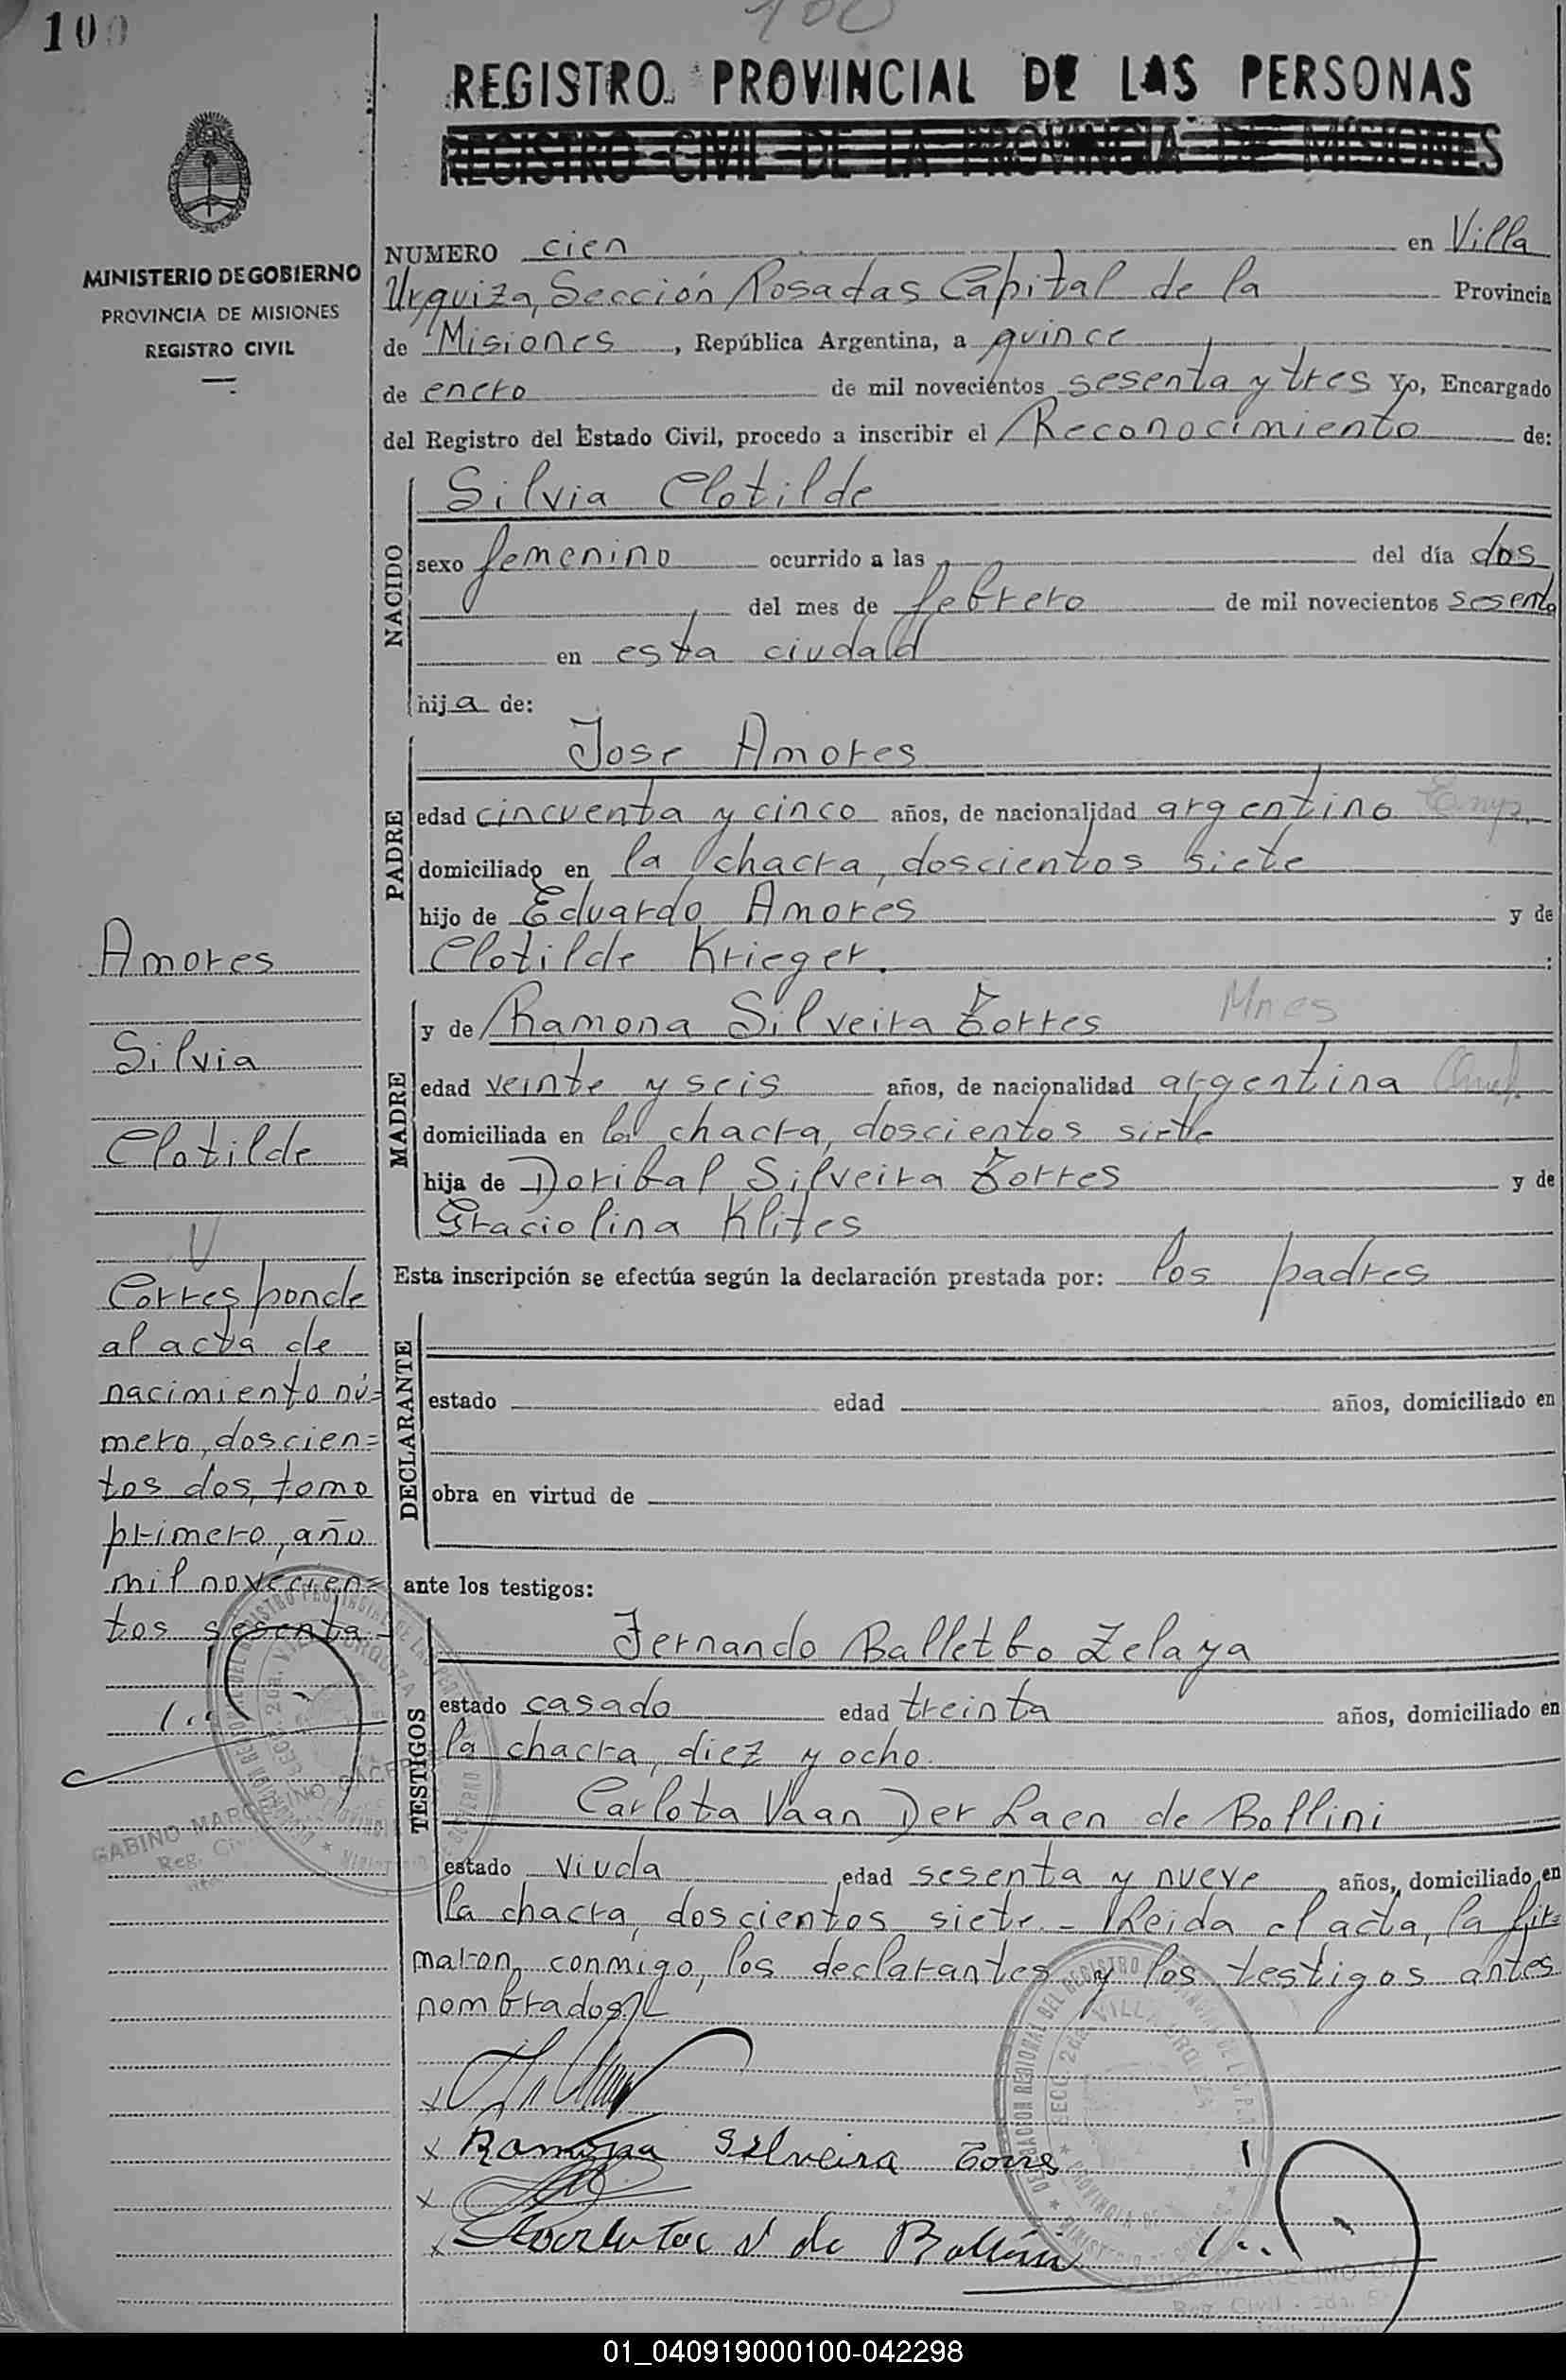 100
100
REGISTRO PROVINCIAL DE LAS PERSONAS
REGISTRO CIVIL DE LA PROVINCIA DE MISIONES
MINISTERIO DE GOBIERNO
PROVINCIA DE MISIONES
REGISTRO CIVIL
NUMERO cien en Villa
Urquiza, Sección Posadas Capital de la Provincia
de Misiones, República Argentina, a quince
de enero de mil novecientos sesenta y tres Yo, Encargado
del Registro del Estado Civil, procedo a inscribir el Reconocimiento de:
NACIDO
Silvia Clotilde
sexo femenino ocurrido a las del día dos
del mes de febrero de mil novecientos sesenta
en esta ciudad
hija de:
PADRE
Jose Amores
edad cincuenta y cinco años, de nacionalidad argentino Emp.
domiciliado en la chacra, doscientos siete
hijo de Eduardo Amores y de
Clotilde Krieger.
MADRE
y de Ramona Silveira Torres Mnes
edad veinte y seis años, de nacionalidad argentina
domiciliada en la chacra, doscientos siete
hija de Doribal Silveira Torres y de
Graciolina Klites
Esta inscripción se efectúa según la declaración prestada por: los padres
DECLARANTE
estado edad años, domiciliado en
obra en virtud de
ante los testigos:
TESTIGOS
Fernando Balletbo Zelaya
estado casado edad treinta años, domiciliado en
la chacra, diez y ocho.
Carlota Vaan Der Laen de Bollini
estado viuda edad sesenta y nueve años, domiciliado en
la chacra, doscientos siete.- Leida el acta, la fir=
maron conmigo, los declarantes y los testigos antes
nombrados
Amores
Silvia
Clotilde
Corresponde
al acta de
nacimiento nú=
mero, doscien=
tos dos, tomo
primero, año
mil novecien=
tos sesenta.-
GABINO MARCELINO
Reg. Civil
x
x Ramona Silveira Torres
x
x Carlota V de Bollini
SECC. 2da. VILLA URQUIZA
Reg. Civil - 2da.
01_040919000100-042298